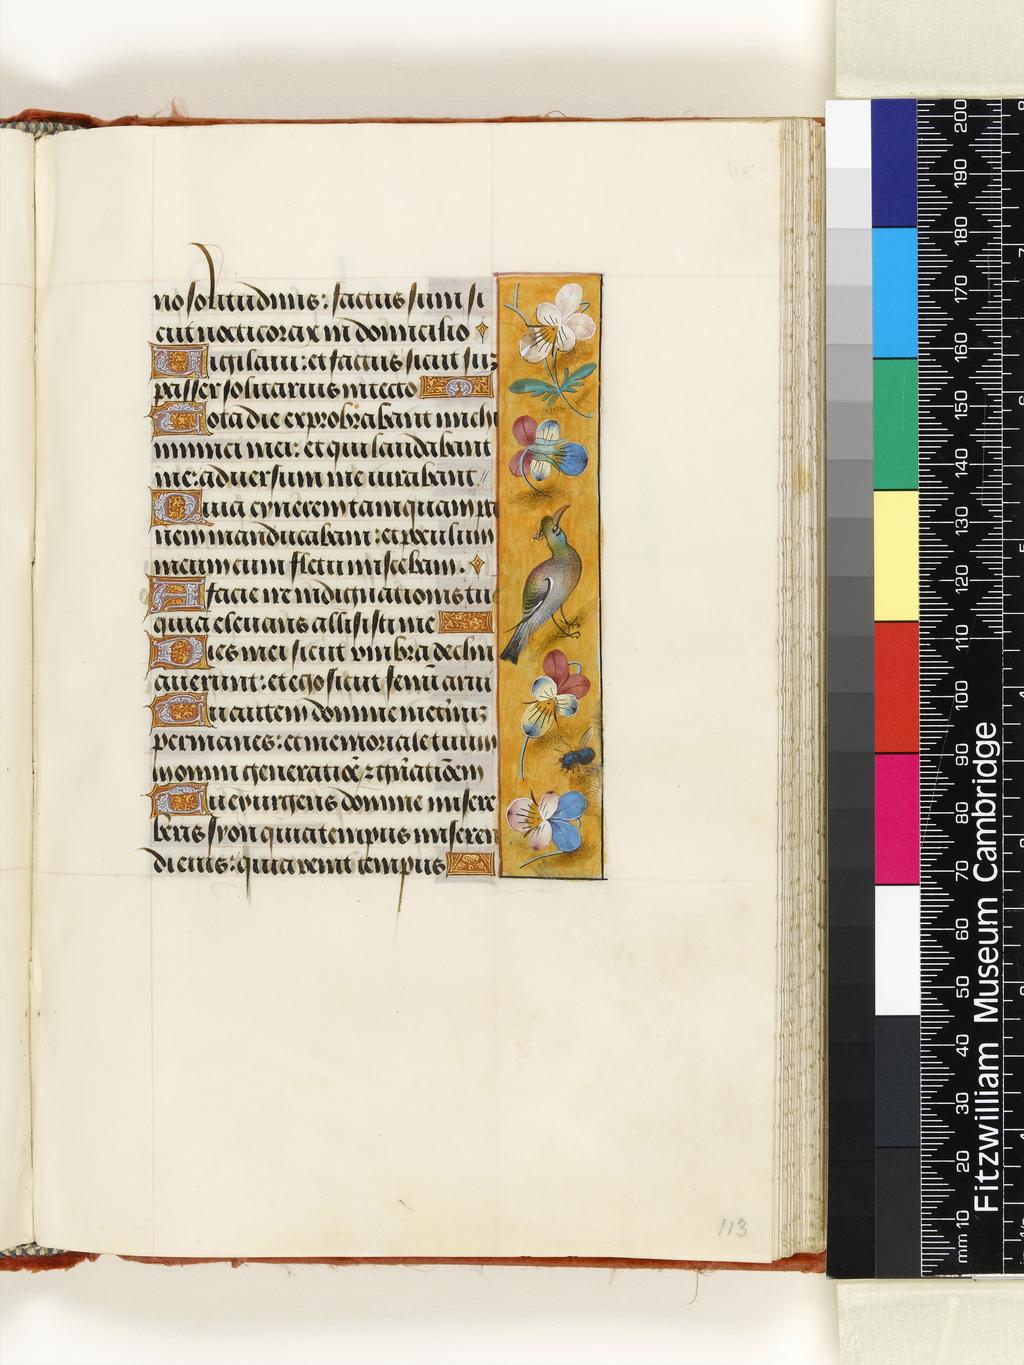 nis solitudinis: factus sum si
cut nocticorax in domicilio
Vigilaui: et factus sicut sic
passer solitarius in tecto
Tota die exprobrabant michi
inimici mei: et qui laudabant
me: aduersum me iurabant.
Quia cynerem tamquam pa
nem manducabam: et poculum
meum cum fletu miscebam.
A facie ire indignationis tue
quia eleuans allisisti me
Dies mei sicut vmbra declin
auerunt: et ego sicut fenū arui
Tu autem domine ineternū
permanes: et memoriale tuum
in omni generatiōe z gn̄atiōem
Tu exurgens domine misere
beris syon quia tempus miseren
di eius: quia venit tempus
113
Fitzwilliam Museum Cambridge
mm 10 20 30 40 50 60 70 80 90 100 110 120 130 140 150 160 170 180 190 200